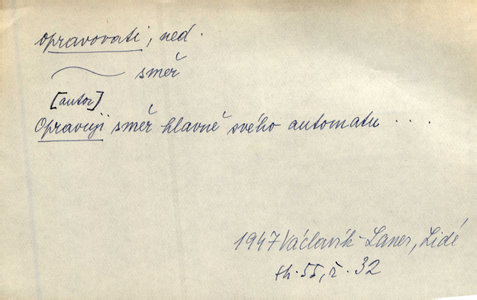 opravovati, ned.
směř
[autor]
Opravuji směř hlavně svého automatu . . . .
1947 Václavík-Laner, Lidé
th. 55, ř. 32